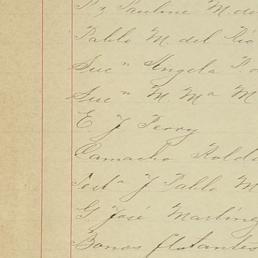 P y Pauline M. de
Pablo M del Rio
Sucn Angela P.
Sucn M. Ma M
E J Terry
Camacho Rold
Testa J Pablo M
G José Martin
Bonos flotantes